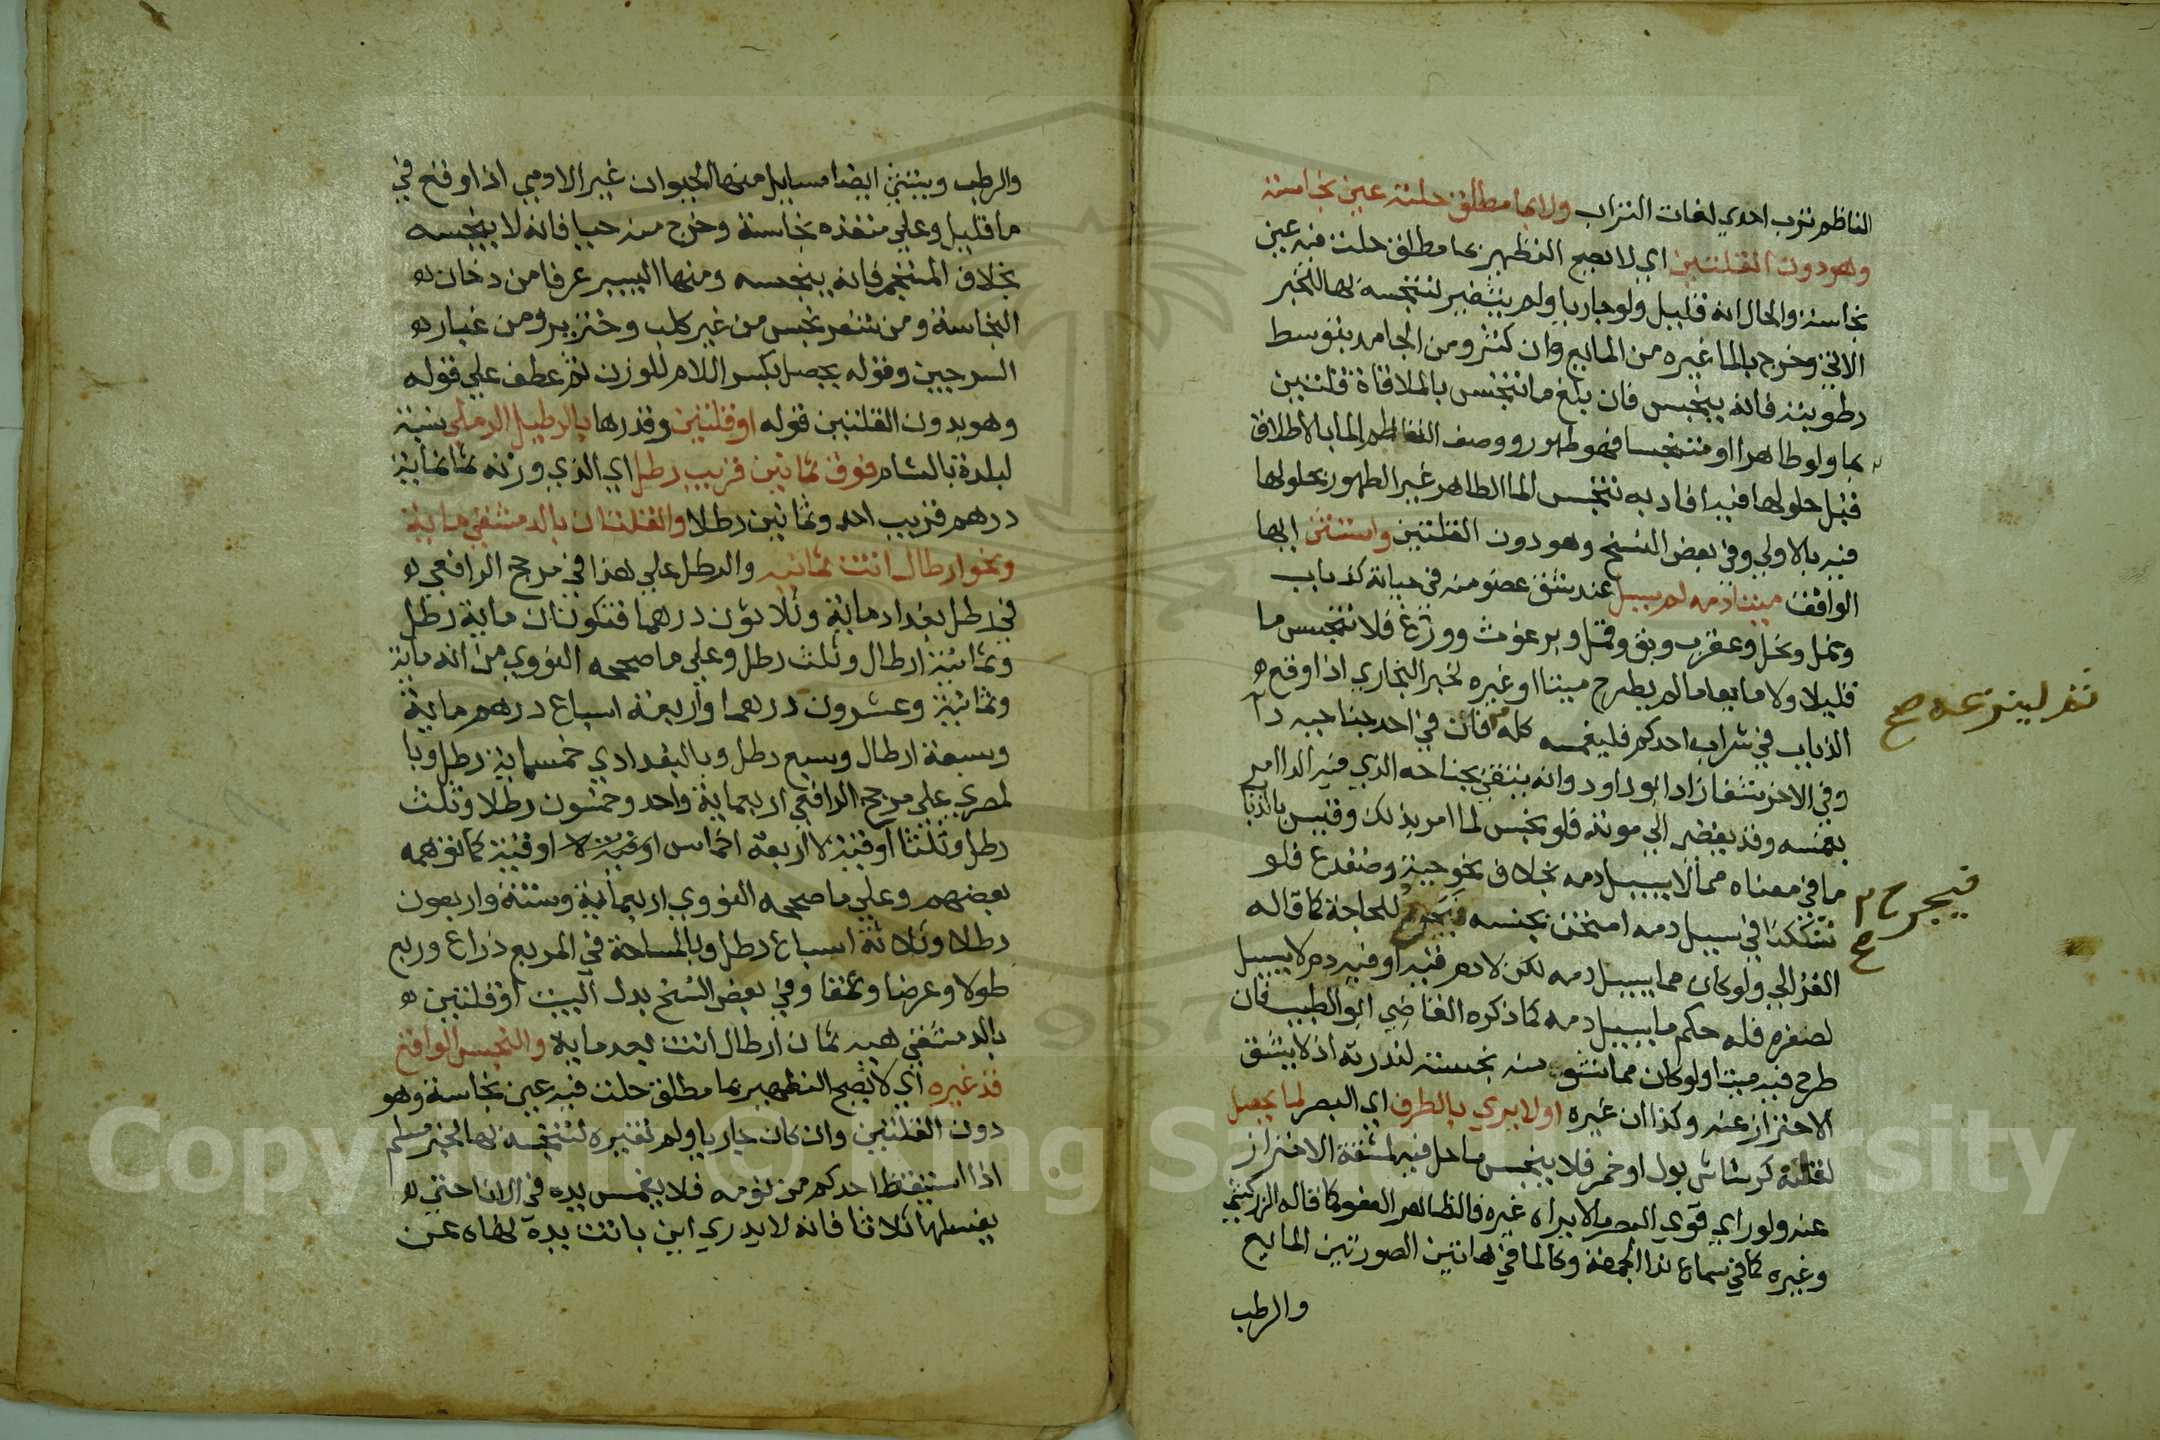 الناظم ترب احدي لغات التراب ولا بما مطلق حلته عين نجاسة
وهو دون القلتين اي لا يصح التطهير بما مطلق حلت فيه عين
نجاسة والحال انه قليل ولو جاريا ولم يتغير لتنجسه لها للخبر
الاتي وخرج بالما غيره من المايع وان كثر ومن الجامد بتوسط
رطوبته فانه ينجس فان بلغ ما تنجس بالملاقاة قلتين
بما ولو طاهرا او متنجسا فهو طهور ووصف الناظم الما بالاطلاق
قبل حلولها فيه افاد به تنجس الما الطاهر غير الطهور بحلولها
فيه بالاولي وفي بعض النسخ وهو دون القلتين واستثن ايها
الواقف ميتا دمه لم يسل عند شق عضو منه في حياته كذباب
ونمل ونحل وعقرب وبق وقمل وبرغوث ووزغ فلا تنجس ما
قليلا ولا مايعا ما لم يطرح ميتا او غيره لخبر البخاري اذا وقع
الذباب في شراب احدكم فليغمسه كله فان في احد جناحيه دا
ثم لينزعه صح
وفي الاخر شفا زاد ابو داود وانه يتقي بجناحه الذي فيه الدا امر
بغمسه وقد يفضي الي موته فلو نجس لما امر بذلك وقيس بالذباب
ما في معناه مما لا يسيل دمه بخلاف نحو حية وضفدع فلو
شككنا في سيل دمه امتحن بجنسه فيجرح للحاجة كما قاله
فيجرح
الغزالي ولو كان مما يسيل دمه لكن لا دم فيه او فيه دم لا يسيل
لصغره فله حكم ما يسيل دمه كما ذكره القاضي ابو الطيب فان
طرح فيه ميتا ولو كان مما نشو منه نجسته لندرته اذ لا يشق
الاحتراز عنه وكذا ان غيره او لا يري بالطرف اي البصر لما يحصل
لقلته كرشاش بول او خمر فلا ينجس ما حل فيه لمشقة الاحتراز
عنه ولو راي قوي البصر ما لا يراه غيره فالظاهر العفو كما قاله الزركشي
وغيره كما في سماع ندا الجمعة وكالما في هاتين الصورتين المايع
والرطب
والرطب ويستثني ايضا مسايل منها الحيوان غير الادمي اذا وقع في
ما قليل وعلي منفذه نجاسة وخرج منه حيا فانه لا ينجسه
بخلاف المستجمر فانه ينجسه ومنها اليسير عرفا من دخان
النجاسة ومن شعر نجس من غير كلب وخنزير ومن غبار
السرجين وقوله يحصل بكسر اللام للوزن ثم عطف علي قوله
وهو بدون القلتين قوله او قلتين وقدرها بالرطيل الرملي نسبة
لبلدة بالشام فوق ثمانين قريب رطل اي الذي وزنه ثمانماية
درهم قريب احد وثمانين رطلا والقلتان بالدمشقي ماية
ونحو ارطال اتت ثمانيه والرطل علي هذا في مرجح الرافعي
في رطل بغداد ماية وثلاثون درهما فتكونان ماية رطل
وثمانية ارطال وثلث رطل وعلي ما صححه النووي من انه ماية
وثمانية وعشرون درهما واربعة اسباع درهم ماية
وسبعة ارطال وسبع رطل وبالبغدادي خمسماية رطل وبا
لمصري علي مرجح الرافعي اربعماية واحد وخمسون رطلا وثلث
رطل وثلثا اوقية لا اربعة اخماس اوقية كما توهمه
بعضهم وعلي ما صححه النووي اربعماية وستة واربعون
رطلا وثلاثة اسباع رطل وبالمساحة في المربع ذراع وربع
طولا وعرضا وعمقا وفي بعض النسخ بدل البيت او قلتين
بالدمشقي هيه ثمان ارطال اتت بعد مايه والنجس الواقع
قد غيره اي لا يصح التطهير بما مطلق حلت فيه عين نجاسة وهو
دون القلتين وان كان جاريا ولم تغيره لتنجسه لها لخبر مسلم
اذا استيقظ احدكم من نومه فلا يغمس يده في الانا حتي
يغسلها ثلاثا فانه لا يدري اين باتت يده نهاه عن